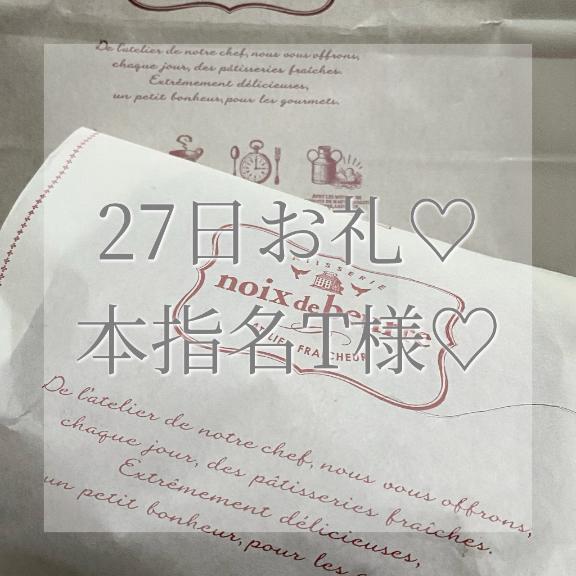 De l'atelier de notre chef, nous vous offrons,
chaque jour, des pâtisseries fraîches.
Extrêmement délicieuses,
un petit bonheur, pour les gourmets.
27日お礼♡
PATISSERIE
noix de beurre
本指名T様♡
ATELIER FRAÎCHEUR
De l'atelier de notre chef, nous vous offrons,
chaque jour, des pâtisseries fraîches.
Extrêmement délicieuses,
un petit bonheur, pour les